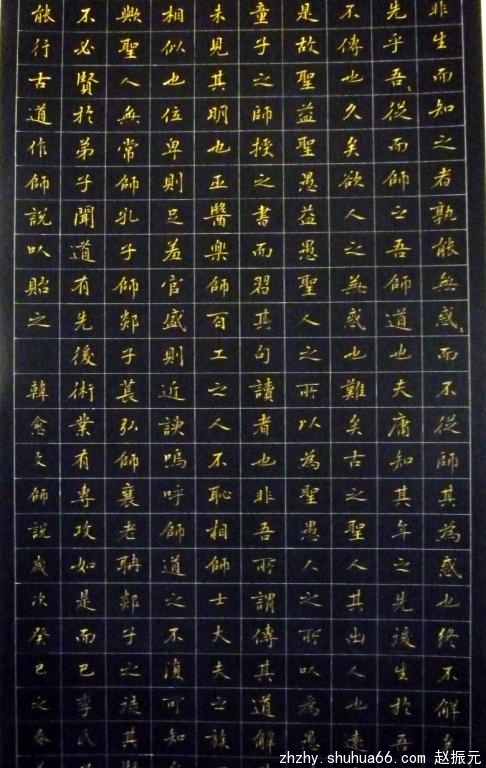 非生而知之者孰能無惑、而不從師其為惑也終不解矣
先乎吾、從而師之吾師道也夫庸知其年之先後生於吾
不傳也久矣欲人之無惑也難矣古之聖人其出人也遠
是故聖益聖愚益愚聖人之所以為聖愚人之所以為愚
童子之師授之書而習其句讀者也非吾所謂傳其道解
未見其明也巫醫樂師百工之人不恥相師士大夫之族
相似也位卑則足羞官盛則近諛嗚呼師道之不復可知
歟聖人無常師孔子師郯子萇弘師襄老聃郯子之徒其
不必賢於弟子聞道有先後術業有專攻如是而已李氏
能行古道作師說以貽之 韓愈文師說歲次癸巳之春
zhzhy.shuhua66.com 赵振元